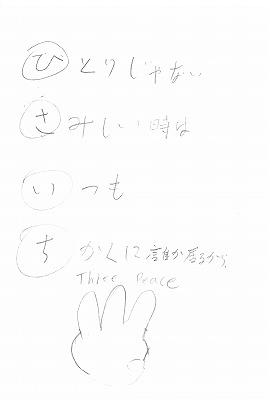 ひとりじゃない
さみしい時は
いつも
ちかくに誰か居るから、
Three Peace